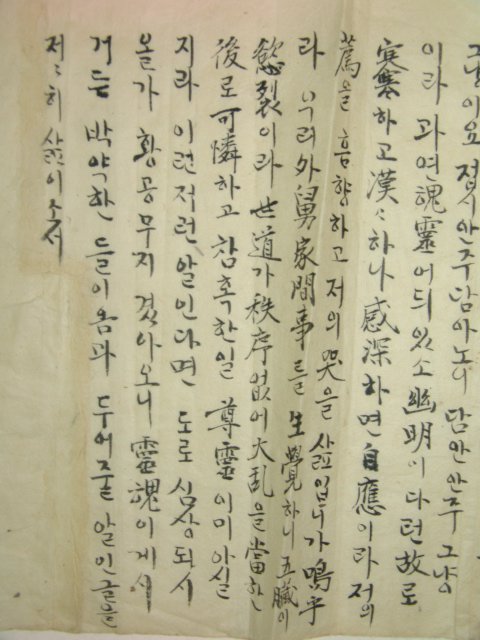 그냥이요 접시안주 담아노니 담안안주 그냥
이라 과연 魂靈 어듸 잇소 幽明이 다턴 故로
寞寞하고 漠々하나 感深하면 自應이라 저의
薦을 흠향하고 저의 哭을 삶읍입니가 嗚乎
라 우리 外舅家間事를 生覺하니 五臟이
慾裂이라 世道가 秩序없어 大乱을 當한
後로 可憐하고 참혹한일 尊靈이미 아실
지라 이런저런 알인다면 도로 심상되시
올가 황공무지 겼아오니 靈魂이 게시
거든 박약한 들이옴과 두어줄 알인글을
저々히 삶이소서